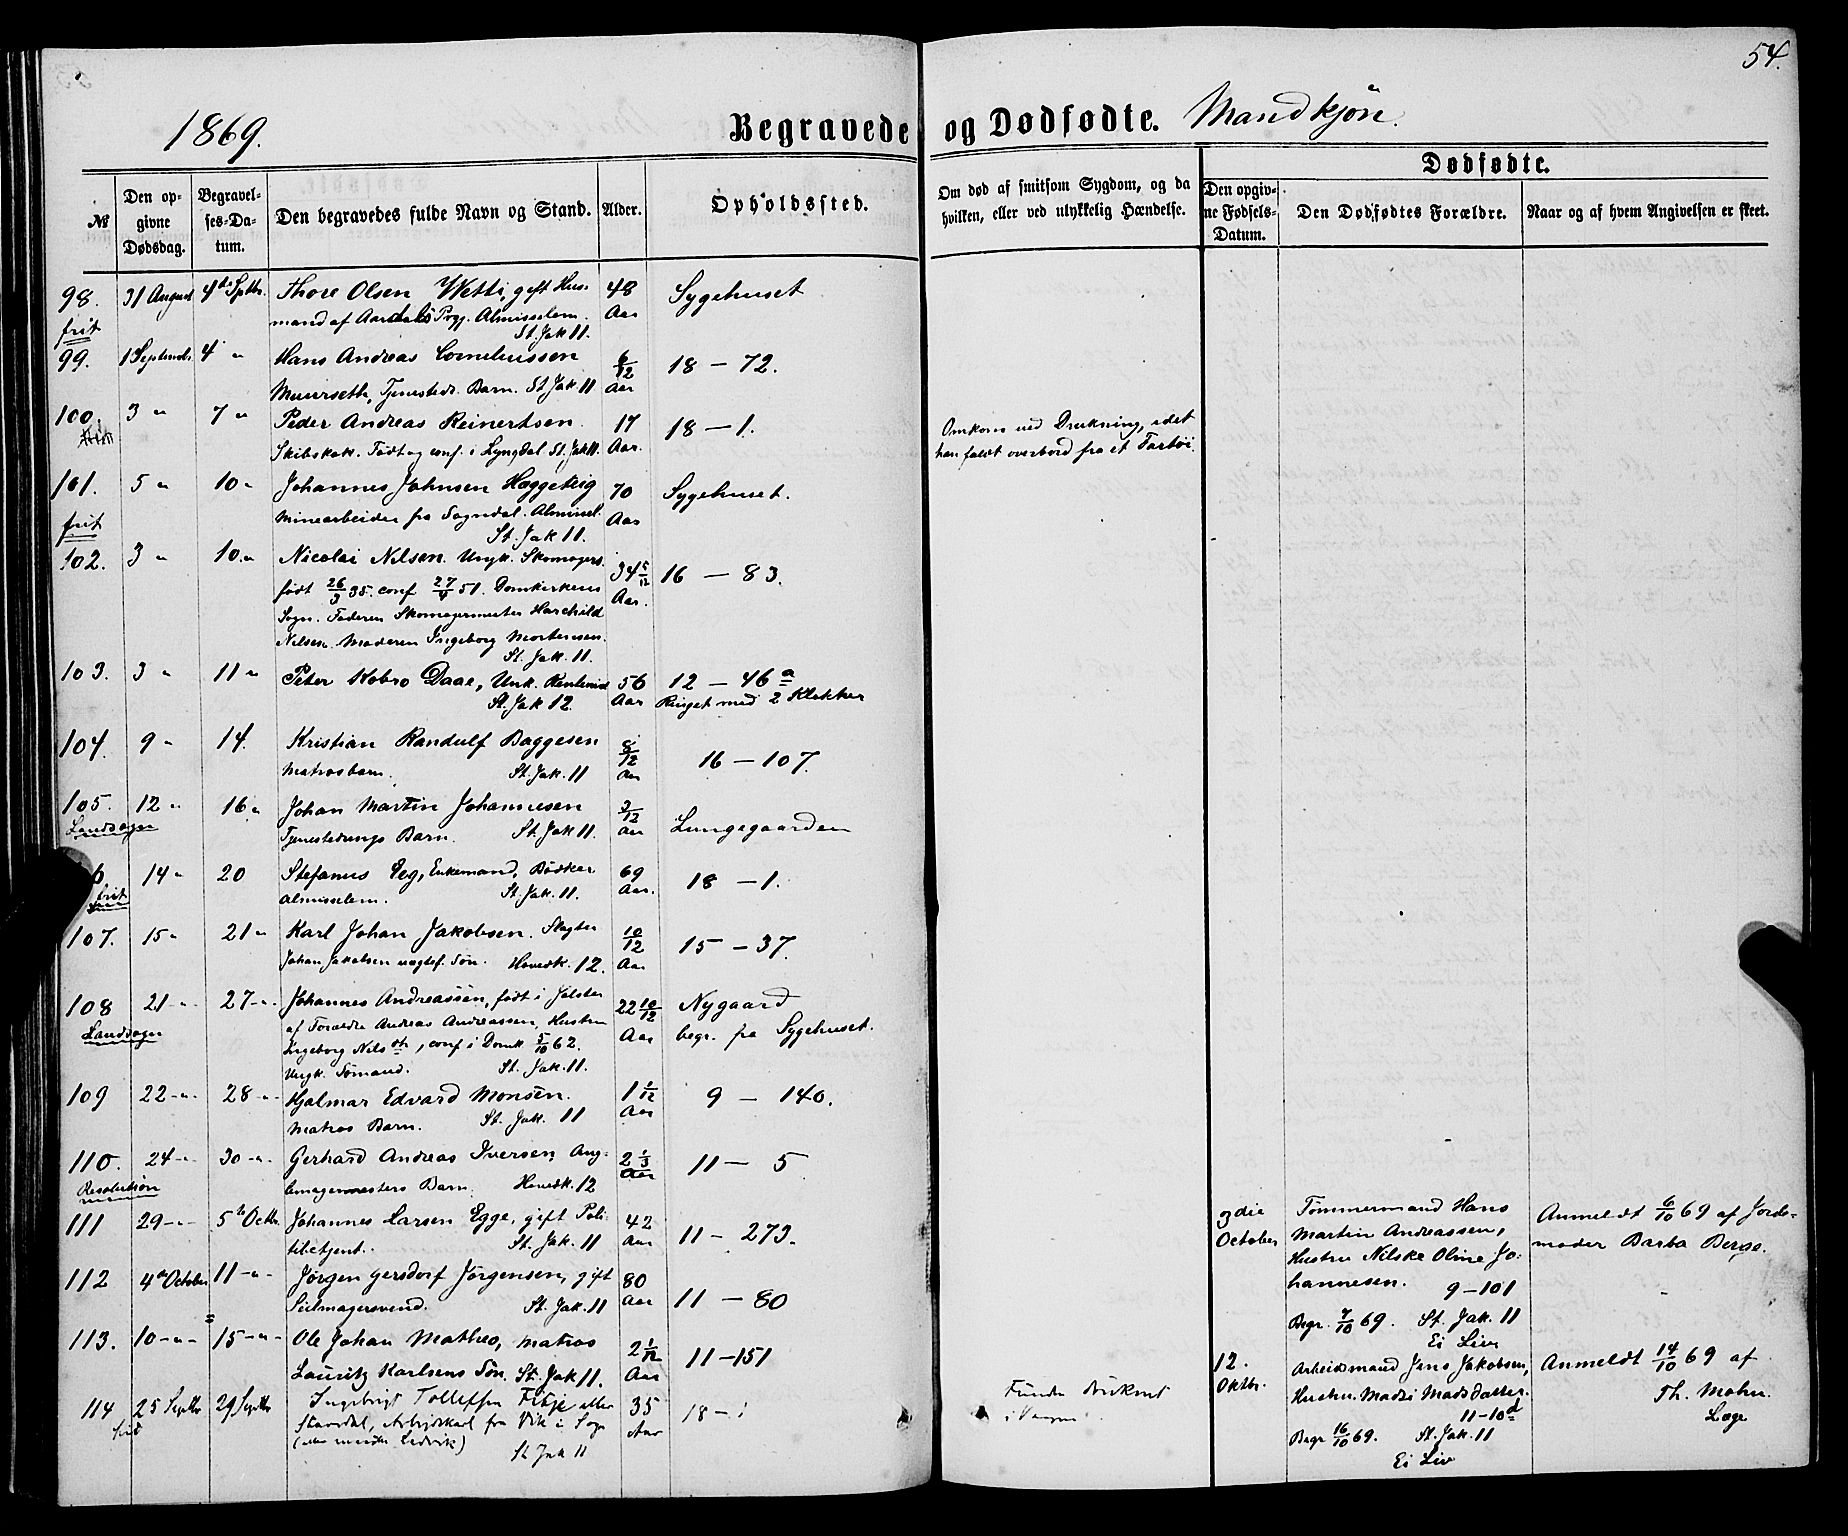 54.
1869.
Begravede og Dødfødte. Mandkjøn.
№
Den opgivne Dødsdag.
Begravelses-Datum.
Den begravedes fulde Navn og Stand.
Alder.
Opholdssted.
Om død af smitsom Sygdom, og da hvilken, eller ved ulykkelig Hændelse.
Dødfødte.
Den opgivne Fødsels-Datum.
Den Dødfødtes Forældre.
Naar og af hvem Angivelsen er skeet.
98. 31 August 4de Sptbr. Thore Olsen Wetti, gift Hus- 48 Sygehuset
frit mand af Aardals Prgj. Almisselem. Aar
St. Jak 11.
99. 1 Septembr. 4 " Hans Andreas Corneliussen 6/12 18 - 72.
Muurseth, Tjenestedr. Barn. St Jak 11 Aar
100. 3 " 7 " Peder Andreas Reinertsen. 17 18 - 1. Omkom ved Drukning, idet
Skibskok. Født og conf. i Lyngdal St. Jak 11. Aar. han faldt overbord fra et Fartøi.
101. 5 " 10 " Johannes Johnsen Haggekig 70 Sygehuset.
frit Minearbeider fra Sogndal. Almissel. Aar
St. Jak 11.
102. 3 " 10. " Nicolai Nilsen. Ungk. Skomagers. 34 5/12 16 - 83.
født 26/3 35. conf 27/4 51. Domkirkens Aar.
Sogn. Faderen Skomagermester Harchild
Nilsen. Moderen Ingeborg Mortensen.
St. Jak. 11.
103. 3 " 11 " Peter Kobro Daae, Unk. Rentenist 56 12 - 46 a
St. Jak 12. Aar Ringet med 2 Klokker
104. 9 " 14. Kristian Randulf Baggesen 8/12 16 - 107.
Matrosbarn. St. Jak. 11 Aar
105. 12 " 16 " Johan Martin Johannesen 3/12 Lungegaarden
Landsogn Tjenestedrengs Barn. St. Jak 11. Aar
6 14 " 20 Stefanus Eeg, Enkemand, Bødker 69 18 - 1.
frit Almisselem. St. Jak. 11. Aar.
107. 15 " 21 " Karl Johan Jakobsen. Slagter 10/12 15 - 37.
Johan Jakobsen uægtef. Søn. Hovedk. 12. Aar
108 21 - " - 27 - " - Johannes Andreassen, født i Jølster 22 10/12 Nygaard
Landsogn af Forældre Andreas Andreassen, Hustru Aar begr. fra Sygehuset.
Ingeborg Nilsdtr, conf i Domk 5/10 62.
Ungk. Sømand. St. Jak. 11.
109 22 - " - 28 - " - Hjalmar Edvard Monsen. 1 1/12 9 - 140.
Matros Barn. St. Jak. 11 Aar
110. 24 - " - 30 - " - Gerhard Andreas Iversen, 2 1/3 11 - 5
Resolution Barn. Hovedk. 12 Aar
111 29 - " - 5te Octbr. Johannes Larsen Egge, gift Poli- 42 11 - 273.
tibetjent. St. Jak. 11 Aar
112 4de October 11 - " - Jørgen Gersdorf Jørgensen, gift 80 11 - 80
Seilmagersvend. St. Jak. 11 Aar
113. 10 - " - 15 - " - Ole Johan Matheo, Matros 2 1/12 11 - 151
Lauritz Karlsens Søn. St. Jak 11. Aar
114 25 Septbr 29 Septbr Ingebrigt Tollefsen 35 18 - 1 Funden druknet
frit Arbejdskarl fra Vik i Sogn Aar i Vaagen.
St Jak 11
3die October
Tømmermand Hans
Martin Andreassen,
Hustru Nilske Oline Jo-
hannesen. 9 - 101
Begr. 7/10 69. St. Jak. 11
Ei Liv
Anmeldt 6/10 69 af Jorde-
moder Barba Berge.
12. Oktbr.
Arbeidsmand Jens Jakobsen,
Hustru. Madsdatter.
11 - 10 d
Begr 16/10 69. St. Jak. 11
Ei Liv
Anmeldt 14/10 69 af
Th. Mohn.
Læge